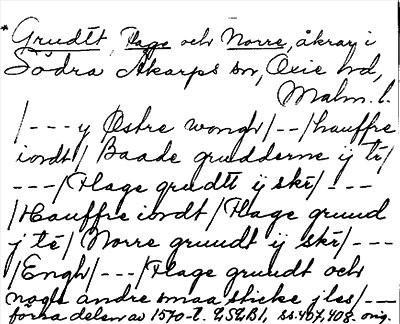 * Grudtt, Flage och Norre, åkrar i
Södra Åkarps sn, Oxie hd,
Malm. l.
/--- y Østre wongh/--/hauffre
iordt/ Baade grudderne ij tē/
---/Flage grudtt ij skē/---
/Hauffre iordt/Flage gruud
j tē/Norre gruudt ij skē/---
/Engh/---/Flage grundt och
nogle andre smaa sticke j les/---
förra delen av 1570-t. LSLB1, ss. 407, 408. orig.